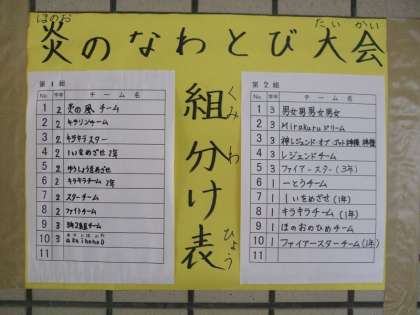 炎のなわとび大会
ほのお
たいかい
組分け表
くみ わ ひょう
第1組
No 学年 チーム名
1 2 炎の風チーム
2 2 キラリンチーム
3 2 キラキラスター
4 2 1いをめざせ 2年
5 2 ゆうしょうをめざせ
6 2 キラキラチーム 2年
7 2 スターチーム
8 2 ファイトチーム
9 3 3年2組チーム
10 3
11
第2組
No 学年 チーム名
1 3 男女男男女男女
2 3 Mirakuruドリーム
3 3 神レジェンドオブゴット
4 3 レジェンドチーム
5 3 ファイアースター(3年)
6 1 一とうチーム
7 1 1いをめざせ(1年)
8 1 キラキラチーム(1年)
9 1 ほのおのひめチーム
10 1 ファイアースターチーム(1年)
11